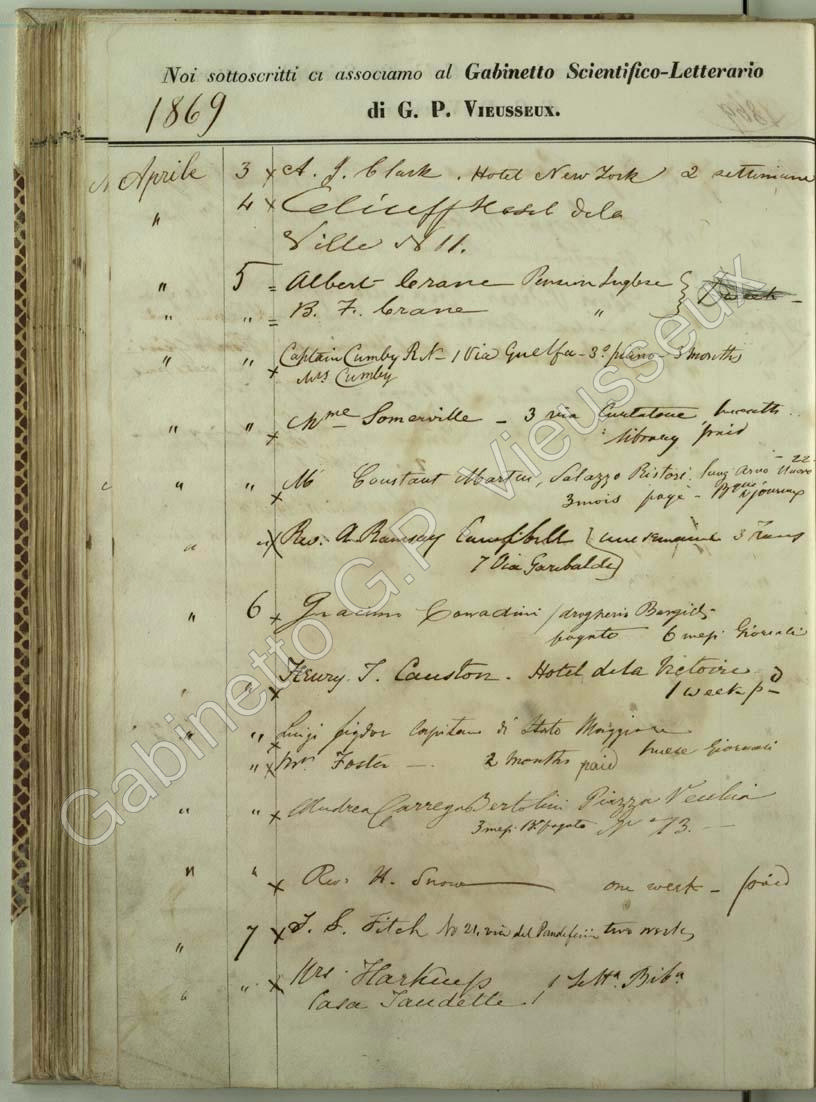 Noi sottoscritti ci associamo al Gabinetto Scientifico-Letterario
1869 di G. P. Vieusseux.
Aprile 3 x A. J. Clark. Hotel New York 2 settimane
" 4 x
Ville N 11.
" 5 = Albert Crane Pension Inglese
" " = B. F. Crane "
" " x Captain Cumby RN - 1 Via Guelfa - 3º piano - 3 months
Mrs Cumby
" " x Mme Somerville - 3 via Curtatone
library paid
" " x Mr Constant Martin, Palazzo Ristori. Lung Arno Nuovo 22
3 mois payé -
" " x Rev. A Ramsay Campbell une semaine 3 francs
7 Via Garibaldi
" 6 x Corradini
pagato 6 mesi Giornali
" " x Henry T. Causton. Hotel de la Victoire
1 week pd
" " x Luigi Capitano di Stato Maggiore
" x Mrs Foster - 2 months paid
" " x Andrea Carrega Bertolini Piazza Vecchia
3 mesi pagato
" " x Rev. H. Snow one week - paid
" 7 x F. S. Fitch No 21, via del two weeks
" " x Mrs. Harkness
Casa
Gabinetto G.P. Vieusseux